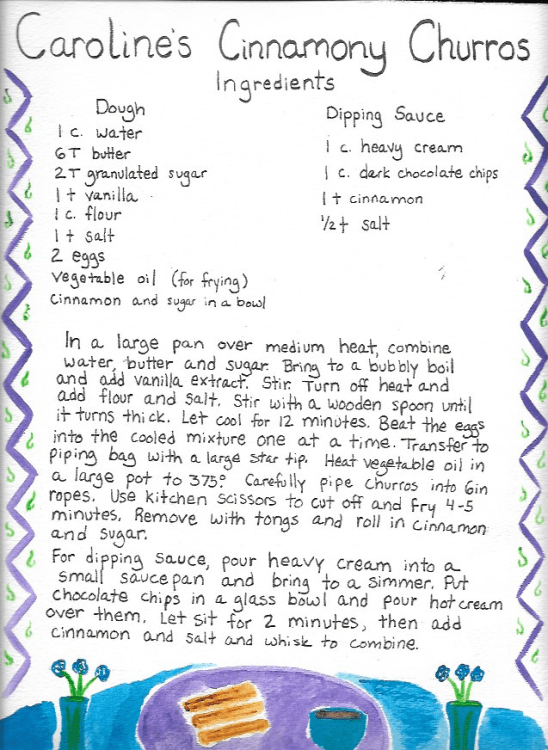 Caroline's Cinnamony Churros
Ingredients
Dough
1 c. water
6 T butter
2 T granulated sugar
1 t vanilla
1 c. flour
1 t salt
2 eggs
vegetable oil (for frying)
Cinnamon and sugar in a bowl
Dipping Sauce
1 c. heavy cream
1 c. dark chocolate chips
1 t cinnamon
1/2 t salt
In a large pan over medium heat, combine
water, butter and sugar. Bring to a bubbly boil
and add vanilla extract. Stir. Turn off heat and
add flour and salt. Stir with a wooden spoon until
it turns thick. Let cool for 12 minutes. Beat the eggs
into the cooled mixture one at a time. Transfer to
piping bag with a large star tip. Heat vegetable oil in
a large pot to 375°. Carefully pipe churros into 6in
ropes. Use kitchen scissors to cut off and fry 4-5
minutes. Remove with tongs and roll in cinnamon
and sugar.
For dipping sauce, pour heavy cream into a
small saucepan and bring to a simmer. Put
chocolate chips in a glass bowl and pour hot cream
over them. Let sit for 2 minutes, then add
cinnamon and salt and whisk to combine.